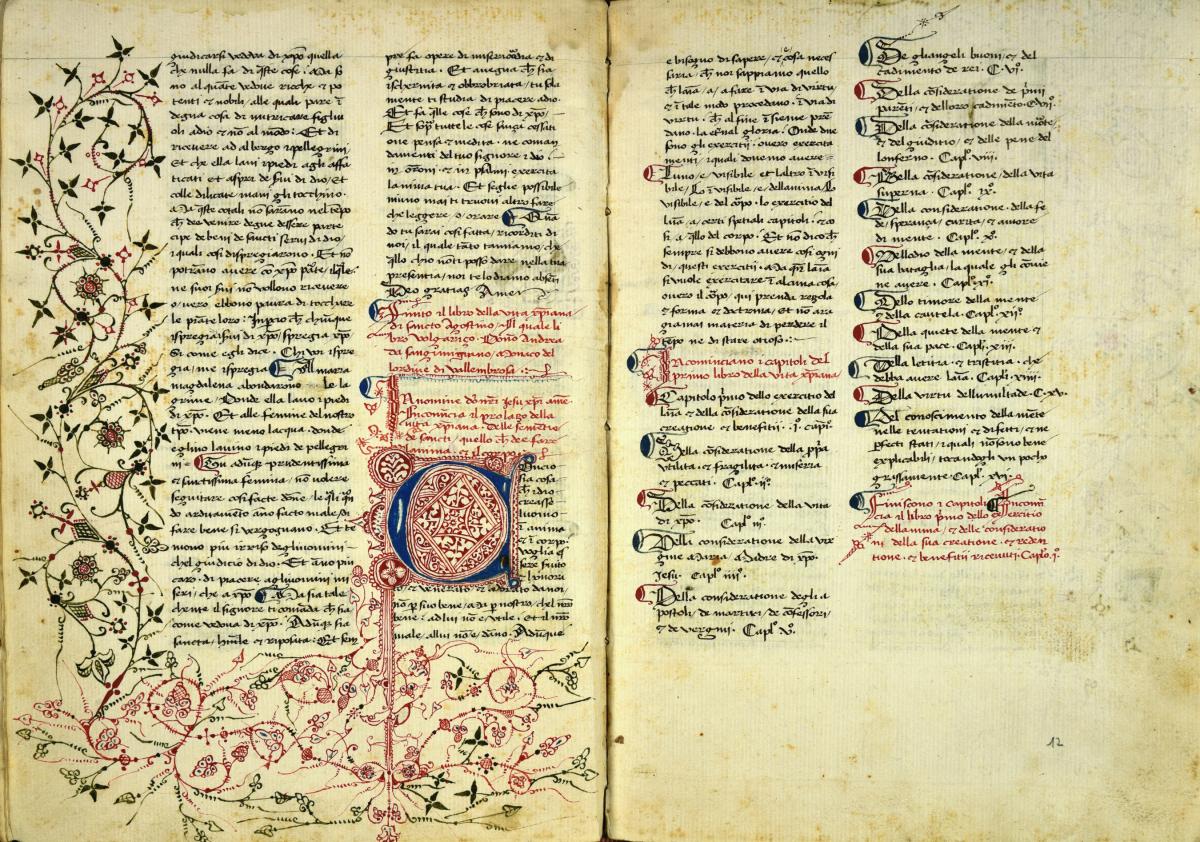 giudicarsi vedova di xp̄o quella
che nulla fa di q̄ste cose. Ma so
no alquāte vedove ricche et po
tenti et nobili, alle quali pare ī
degna cosa di nutricare figliu
oli adio et nō al mōdo. Et di
ricevere ad albergo i pellegrini
Et che ella lavi i piedi agli affa
ticati et aspri de servi di dio, et
colle dilicate mani gli tocchino.
Ma q̄ste cotali nō sarāno nel tēpo
ch̄ de venire degne dessere parte
cipe de beni de sancti servi di dio
i quali cosi dispregiarono. Et nō
potrāno avere cō xp̄o pāte, il q̄le
ne suoi servi nō vollono ricevere
overo ebbono paura di tocchare
le piāte loro. Inpciò ch̄ chiūque
ispregia i servi di xp̄o, spregia xp̄o
Si come egli dice. Chi voi ispre
gia, me ispregia. Alla maria
magdalena abondarono le la
grime, donde ella lavo i piedi
di xp̄o. Et alle femine del nostro
tēpo viene meno lacqua, donde
eglino lavino i piedi de pellegri
ni. Tu adūq̄ prudentissima
et sanctissima femina, nō volere
seguitare cosi facte dōne, le q̄li
fare bene si vergognano. Et te
mono piu irrisi degli uomini
chel giudicio di dio. Et āno piu
caro di piacere agli uomini mi
seri, che a xp̄o. Ma sia tale
chente il signore ti comāda ch̄ sia
come vedova di xp̄o. Adūq̄ sia
sancta, humile et riposata. Et sem
pre fa opere di misericordia et di
giustitia. Et avegna ch̄ sia
ischernita et obbrobriata, tu sola
mente ti studia di piacere adio.
Et fa q̄lle cose ch̄ sono di xp̄o.
Et sop̄ tutte le cose sanza cessati
one pensa et medita ne coman
damenti del tuo signore idio
in orōni et in psalmi exercita
la mīa tua. Et se gli e possibile
niuno mai ti truovi altro fare
che leggere o orare. Et qua
do tu sarai cosi fatta, ricorditi di
noi, il quale tāto tamiamo, che
q̄llo ch̄ nō ti possiā dare nella tua
presentia, noi telo diamo absēti
Deo gratias Amen
Finito il libro della vita xp̄iana
di sancto Agostino. Il quale li
bro volgariço. Dōno Andrea
da sangimignano, monaco del
lordine di Vallembrosa.
In nomine dō nr̄i Jesu xp̄i am̄e
Incomīcia il prolago della
vita xp̄iana
de sancti, quello ch̄ de fare
lanima et il corpo
Ducio
sia cosa
ch̄ idio
creasse
luomo
ī anima
et ī corpo
voglia eē
sere servito
et honora
to, et venerato et adorato da noi
nō p̄ suo bene, ma p̄ nostro, chel nrō
bene adlui nō e utile. Et il nrō
male allui nō e dāno. Adūque
e bisogno di sapere, et e cosa neces
saria, ch̄ noi sappiamo quello
ch̄ laīa, a, a fare ī via di virtu,
et ī tale modo procedano ī via di
virtu ch̄ al fine ī sieme prē
dano la eternal gloria. Onde due
sono gli exercitii, overo exercita
menti, i quali dovemo avere
Luno e visibile et laltro īvisi
bile, Lo īvisibile, e, dellanima, Lo
visibile, e del corpo. Lo exercitio del
laīa, a, certi spetiali capitoli. Et co
si, a, quello del corpo. Et nō dico ch̄
sempre si debbono avere cosi ogni
di, questi exercitii. Ma quādo laīa
si vuole exercitare ī alcuna cosa
overo il corpo, qui prenda regola
et forma et doctrina, Et nō ara
giamai materia di perdere il
tēpo ne di stare otioso.
Incominciano i capitoli del
primo libro della vita xp̄iana
Capitolo p̄mo dello exercitio del
laīa, et della cōsideratione della sua
creatione et benefitii. j. capl̄o.
Della cōsideratione della p̄p̄ia
vilita, et fragilita, et miseria
et peccati. Capl̄. ij.
Della cōsideratione della vita
di xp̄o. Capl̄. iij.
Della cōsideratione della vir
gine Maria, Madre di xp̄o.
Jesu. Capl̄. iiij.
Della consideratione degli a
postoli, de martiri, de cōfessori,
et de vergini. Capl̄. v.
De gliangeli buoni, et del
cadimento de rei. C. vj.
Della cōsideratione de p̄mi
parēti, et delloro cadimēto. C. vij.
Della cōsideratione della mōte
et del giudicio, et delle pene del
lonferno. Capl̄. viij.
Della cōsideratione della vita
superna. Capl̄. ix.
Della consideratione della fe
de, sperança, carita, et amore
di mente. Capl̄. x.
Dellodio della mente, et della
sua bataglia, la quale gli cōvie
ne avere. Capl̄. xj.
Dello timore della mente
et della cautela. Capl̄. xij.
Della quiete della mente et
della sua pace. Capl̄. xiij.
Della letitia, et tristitia, che
debba avere laīa. Capl̄. xiiij.
Della virtu dellumiltade. C. xv.
Del conoscimento della mēte
nelle tentationi, et difetti, et ne
p̄fecti stati, i quali nō sono bene
explicabili, tocandogli un pocho
grossamente. Capl̄. xvj.
Finiscono i capitoli. Incomī
cia il libro p̄mo dello exercitio
dellanima, et delle cōsideratio
ni della sua creatione, et reden
tione, et benefitii ricevuti. Capl̄o. j.
12